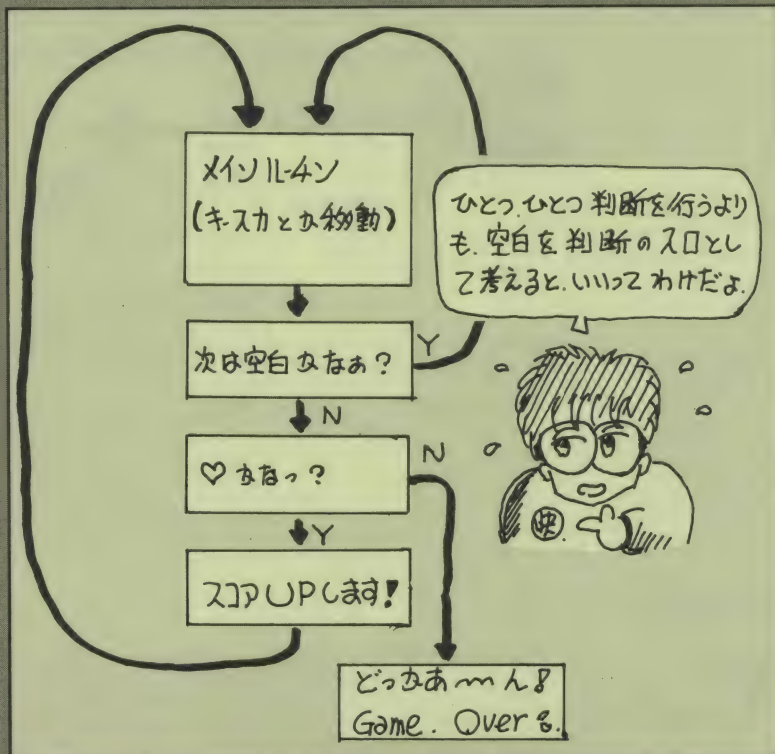 メインルーチン
(キースカとか移動)
次は空白かなぁ?
Y
N
♡かなっ?
N
Y
スコアUPします!
どっかあ〜ん!
Game. Over
ひとつ、ひとつ判断を行うより
も、空白を判断のスロとし
て考えると、いいってわけだよ.
快